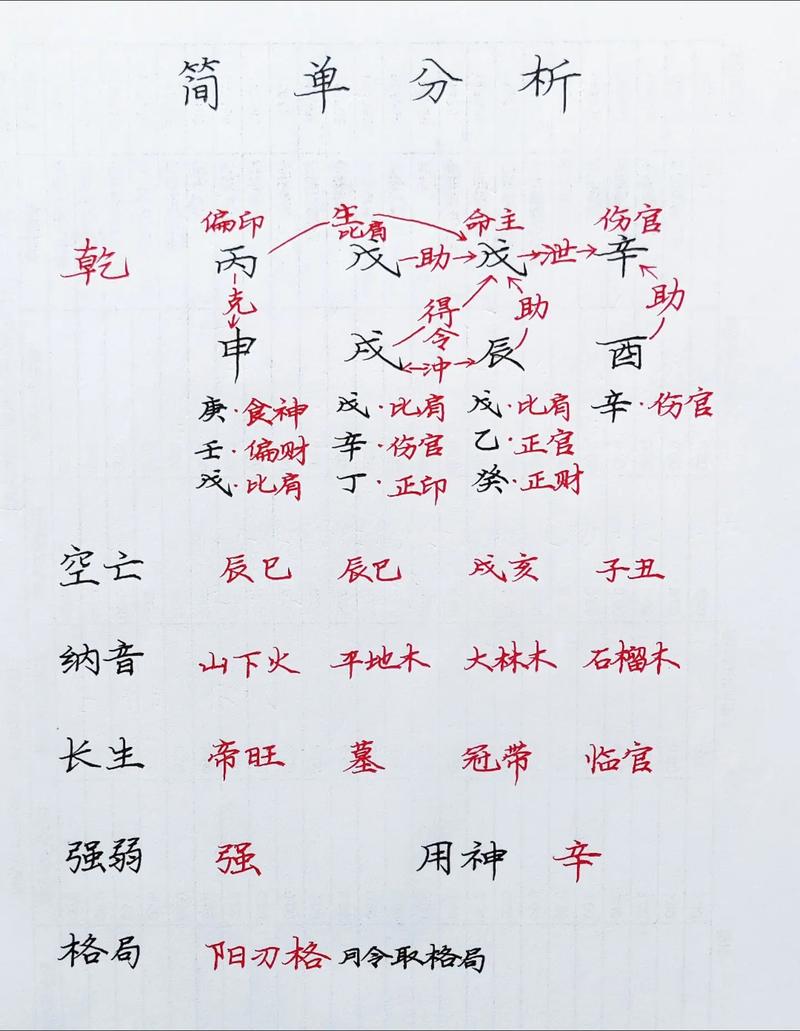 简单分析
偏印 生 比肩 命主 伤官
乾 丙 戊 助 戊 泄 辛
克 得令 助 助
申 戌 冲 辰 酉
庚·食神 戊·比肩 戊·比肩 辛·伤官
壬·偏财 辛·伤官 乙·正官
戊·比肩 丁·正印 癸·正财
空亡 辰巳 辰巳 戌亥 子丑
纳音 山下火 平地木 大林木 石榴木
长生 帝旺 墓 冠带 临官
强弱 强 用神 辛
格局 阳刃格 月令取格局